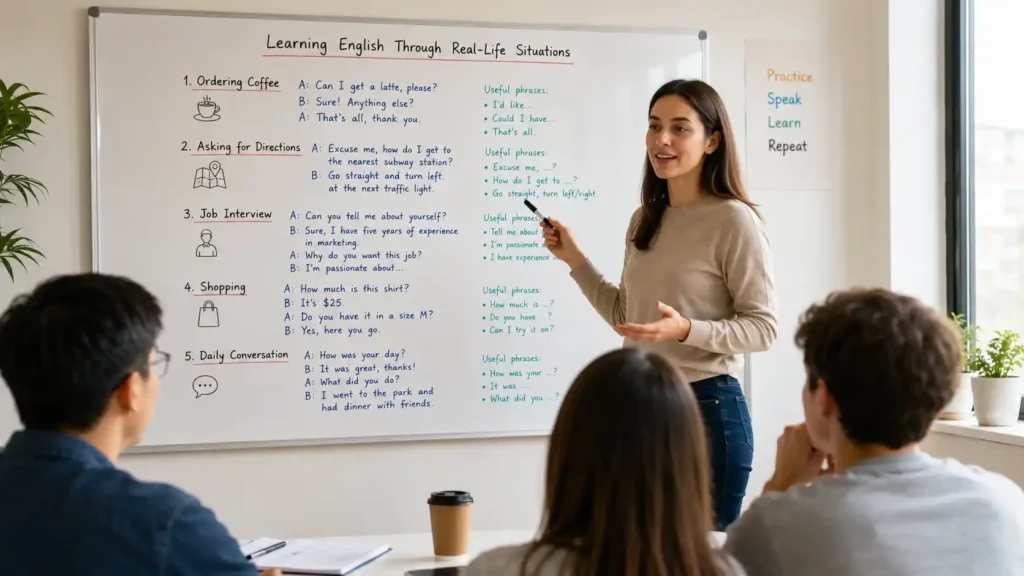 Learning English Through Real-Life Situations
1. Ordering Coffee
A: Can I get a latte, please?
B: Sure! Anything else?
A: That's all, thank you.
Useful phrases:
• I'd like...
• Could I have...
• That's all.
2. Asking for Directions
A: Excuse me, how do I get to
the nearest subway station?
B: Go straight and turn left.
at the next traffic light.
Useful phrases:
• Excuse me, ...?
• How do I get to ...?
• Go straight, turn left/right.
3. Job Interview
A: Can you tell me about yourself?
B: Sure, I have five years of experience
in marketing.
A: Why do you want this job?
B: I'm passionate about...
Useful phrases:
• Tell me about
• I'm passionate
• I have experience
4. Shopping
A: How much is this shirt?
B: It's $25.
A: Do you have it in a size M?
B: Yes, here you go.
Useful phrases:
• How much is ...?
• Do you have ...?
• Can I try it on?
5. Daily Conversation
A: How was your day?
B: It was great, thanks!
A: What did you do?
B: I went to the park and
had dinner with friends.
Useful phrases:
• How was your ...?
• It was ......
• What did you ...?
Practice
Speak
Learn
Repeat